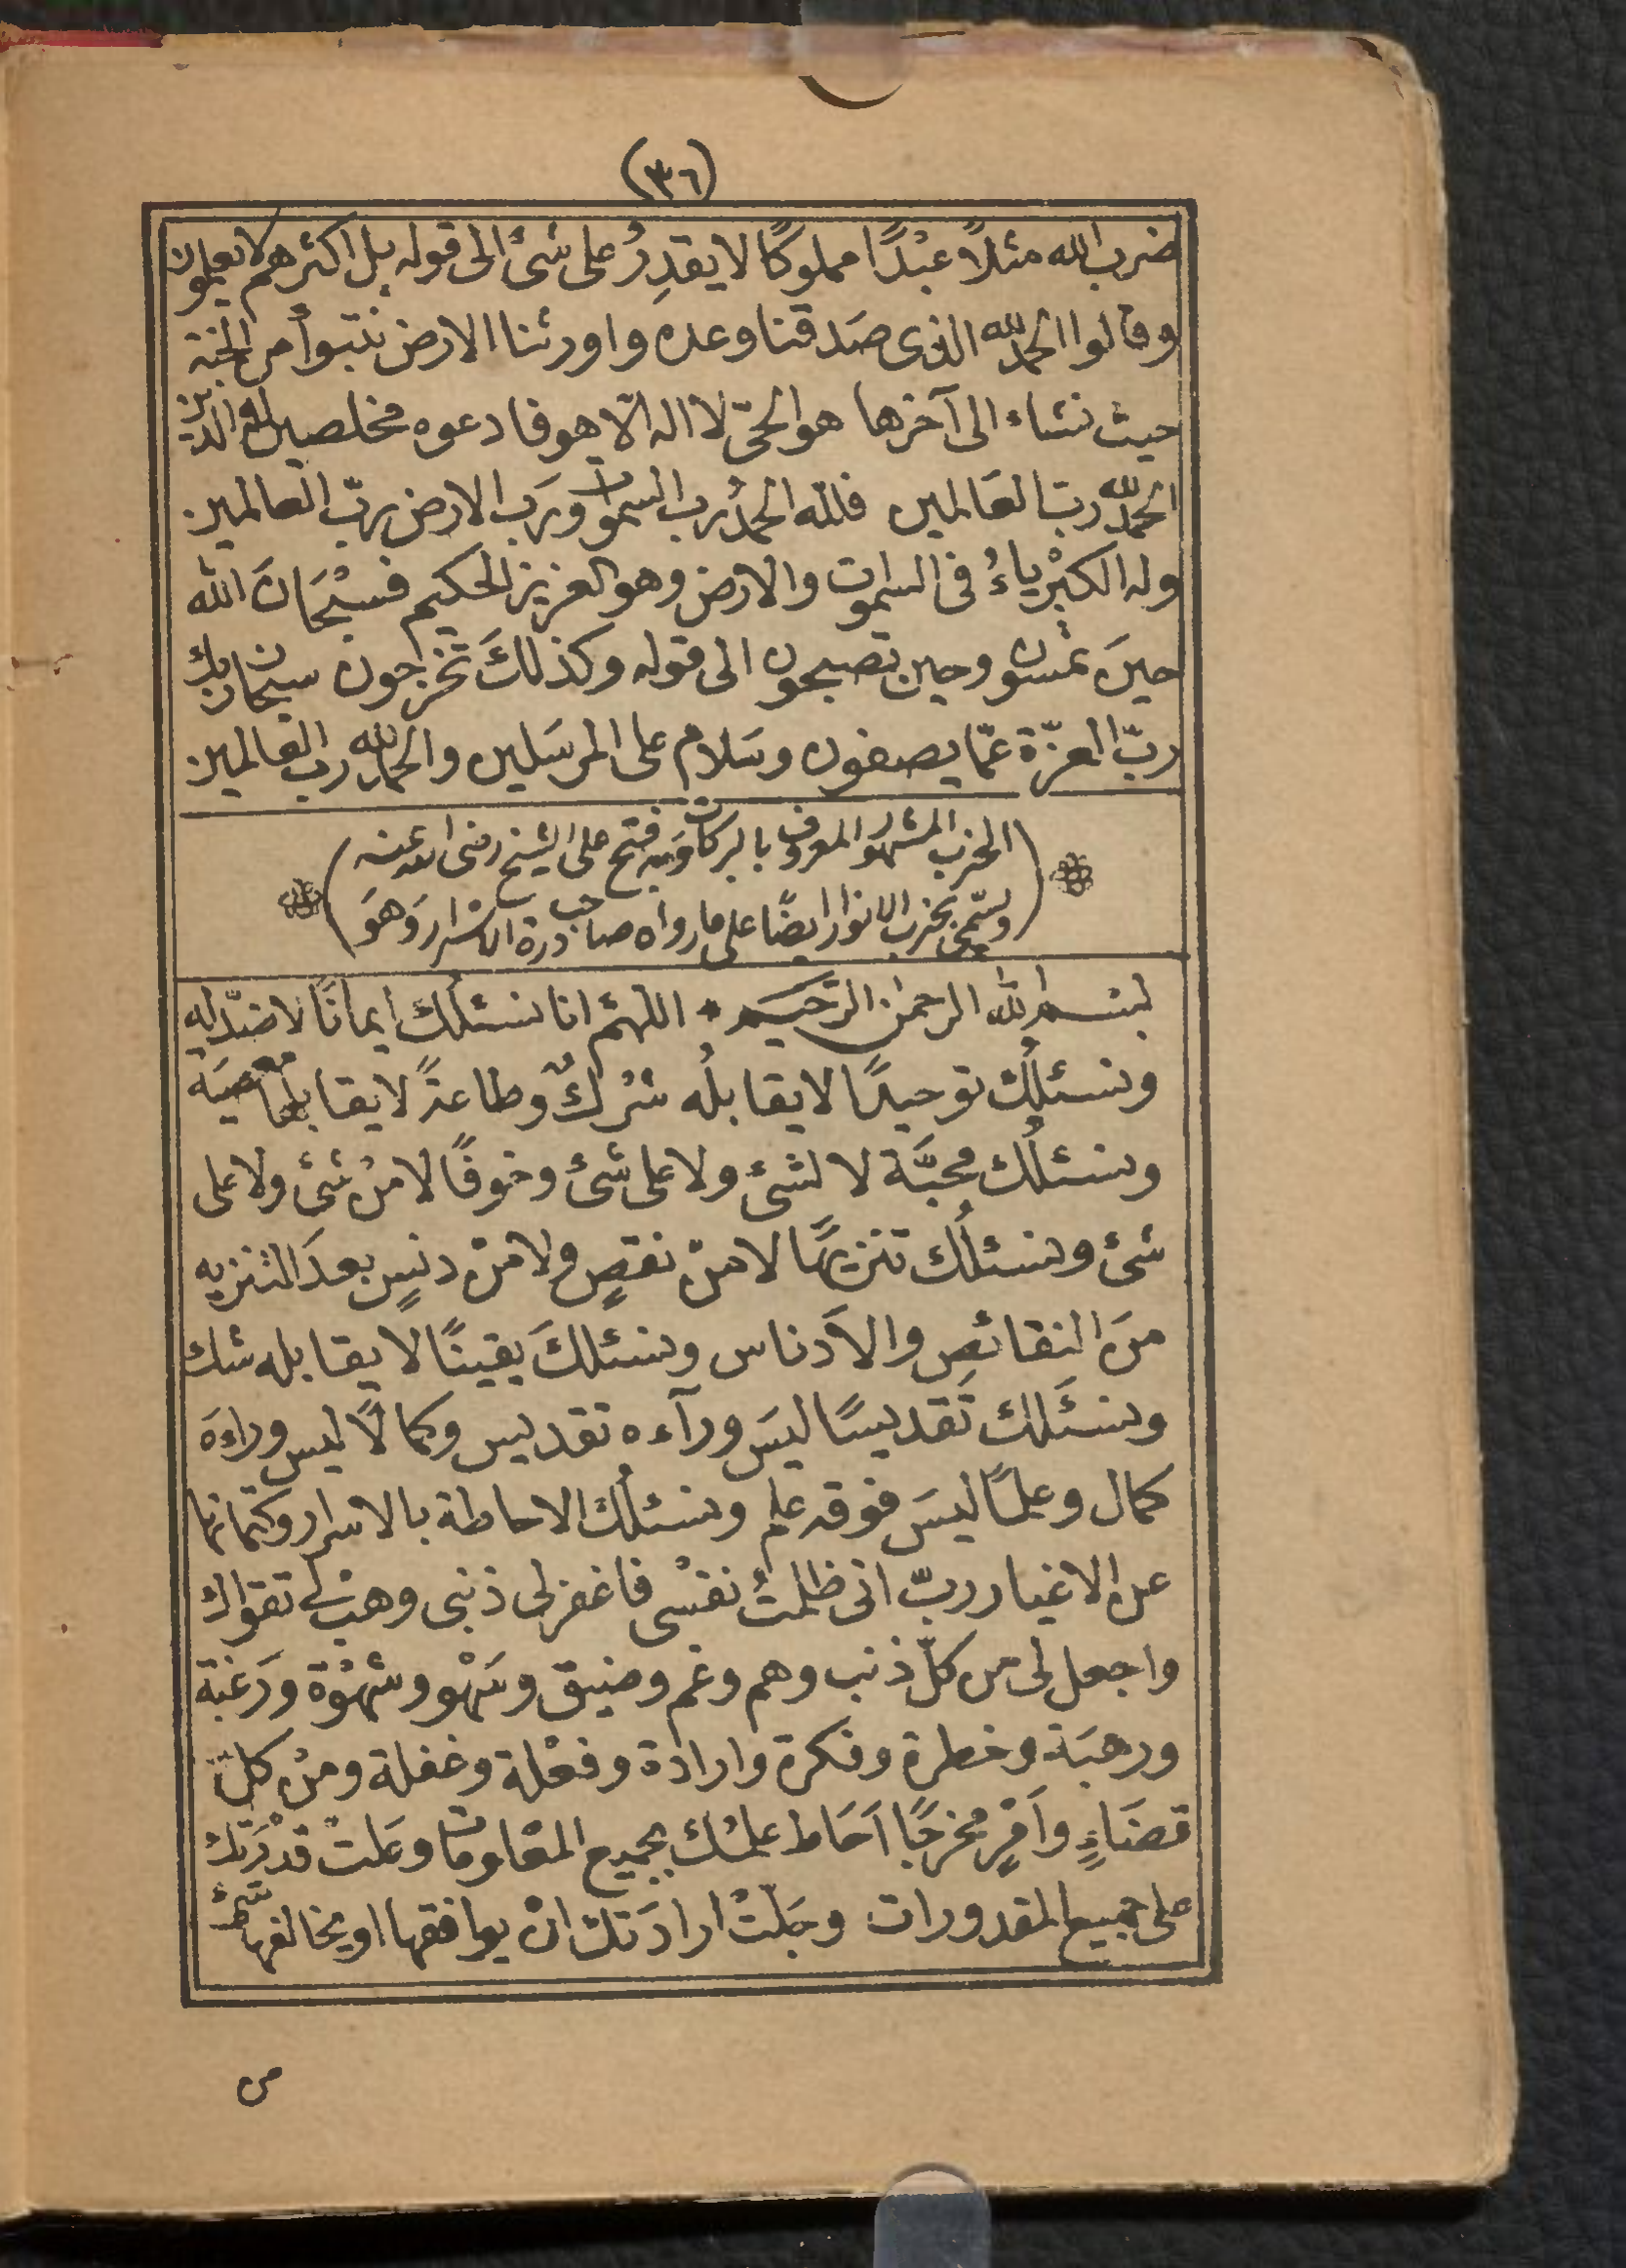 (٣٦)
ضرب الله مثلاً عبْدًا مملوكًا لا يقدِرُ على شئ الى قوله بل اكثرهم لا يعلمون
وقالوا الحمد لله الذى صَدقنا وعده واورثنا الارض نتبوأ من الجنة
حيث نشاء الى آخرها هو الحىّ لا اله الّا هو فادعوه مخلصين له الدين
الحمد لله ربّ العَالمين فلله الحمدُ رب السموات ورَب الارض ربّ العالمين
وله الكبْرياءُ فى السموات والارض وهو العزيز الحكيم فسبْحَانَ الله
حينَ تمسون وحين تصبحون الى قوله وكذلكَ تخرجون سبحان ربك
ربّ العزّة عمّا يصفون وسَلام على المرسَلين والحمد لله رب العالمين
(الحزب المشهور المعروف بالبركات وَبه فتح على الشيخ رضى الله عنه
ويسمّى بحزب الانوار ايضًا على ما رواه صاحب درة الاسْرار وَهوَ)
بسم الله الرحمن الرحيم * اللهم انا نسئلُك ايمانًا لا ضدّ له
ونسئلُك توحيدًا لا يقابلُه شرْكٌ وطاعةً لا يقابلها معصيَة
ونسئلُك محبَّة لا لشئ ولا على شئ وخوفًا لا منْ شئ ولا على
شئ ونسئلُك تنزيهًا لا منْ نقصٍ ولا منْ دنسٍ بعدَ التنزيه
منَ النقائصِ والاَدناس ونسئلكَ يقينًا لا يقابله شك
ونسئَلك تَقديسًا ليسَ ورآءه تقديس وكمالًا ليس وراءَه
كمال وعلمًا ليسَ فوقه علم ونسئلُك الاحاطة بالاسرار وكتمانها
عن الاغيار ربّ انى ظلمتُ نفسْى فاغفر لى ذنبى وهبْ لى تقواك
واجعل لى من كلّ ذنب وهم وغم وضيق وسَهْو وشهْوَة ورَغبَة
ورهبَة وخطرة وفكرة وارادة وفعْلة وغفلة ومنْ كلّ
قضَاءٍ وأَمْرٍ مخرجًا اَحَاط علمُك بجميع المعْلومات وعَلتْ قدْرَتك
على جميع المقدورات وجَلّتْ ارادَتك انْ يوافقها او يخالفها شئ
من